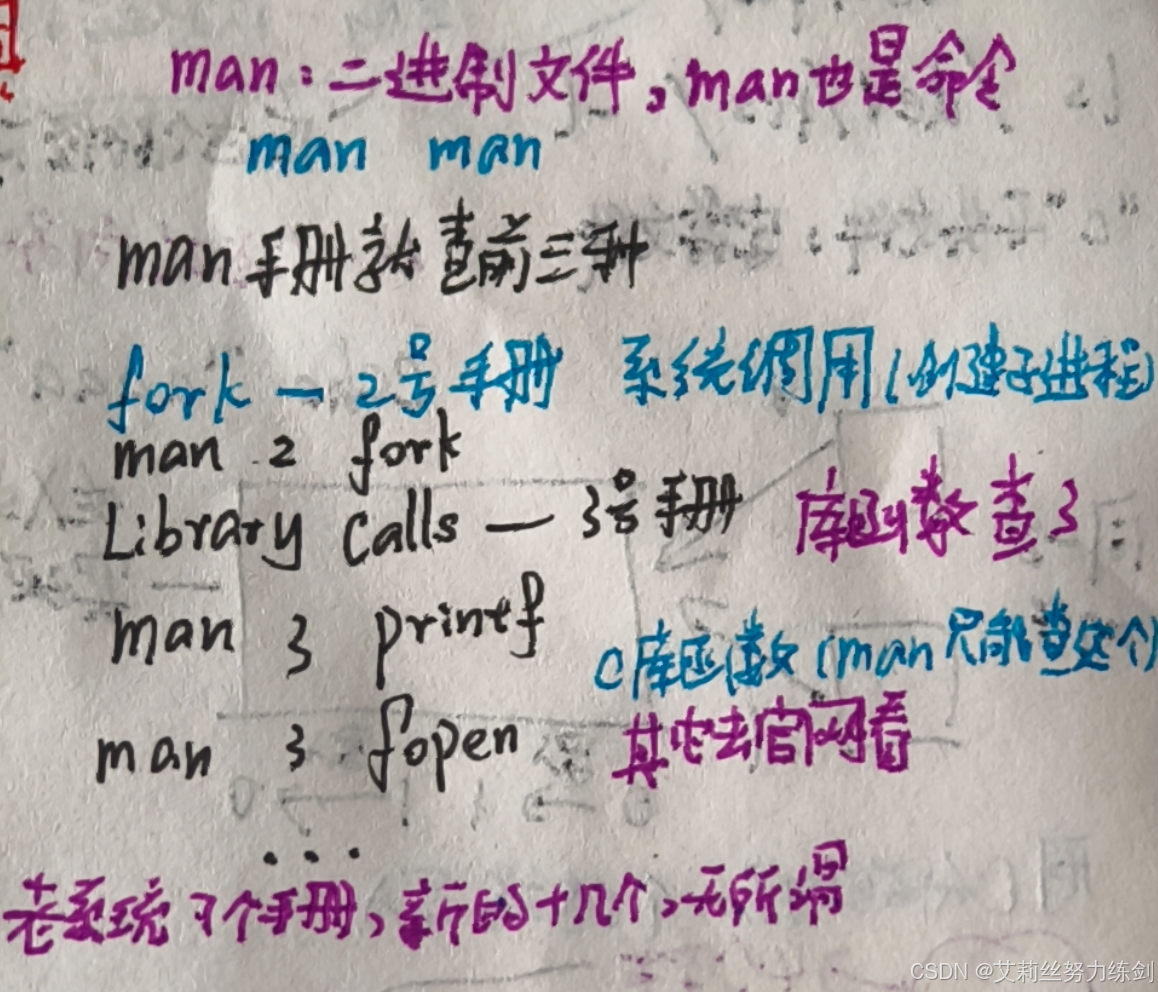 man：二进制文件，man也是命令
man man
man手册就查前三种
fork — 2号手册 系统调用(创建子进程)
man 2 fork
Library Calls — 3号手册 库函数查3
man 3 printf
C库函数(man只能查这个)
man 3 fopen 其它去官网看
...
老系统7个手册，新的十几个，无所谓
CSDN @艾莉丝努力练剑